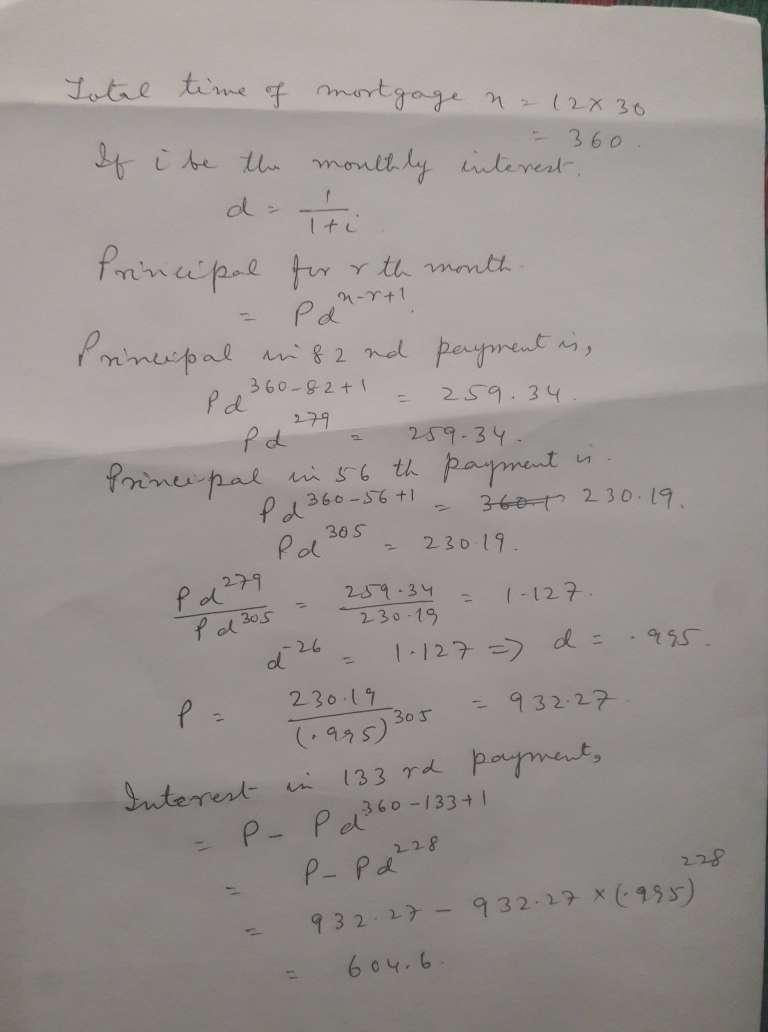 Total time of mortgage n = 12 x 30
= 360.
If i be the monthly interest.
d = 1/(1+i)
Principal for r th month.
= Pd^(n-r+1).
Principal in 82 nd payment is,
Pd^(360-82+1) = 259.34.
Pd^279 = 259.34.
Principal in 56 th payment is.
Pd^(360-56+1) = 230.19.
Pd^305 = 230.19.
Pd^279/Pd^305 = 259.34/230.19 = 1.127.
d^-26 = 1.127 => d = .995.
P = 230.19/(.995)^305 = 932.27
Interest in 133 rd payment,
= P - Pd^(360-133+1)
= P - Pd^228
= 932.27 - 932.27 x (.995)^228
= 604.6.